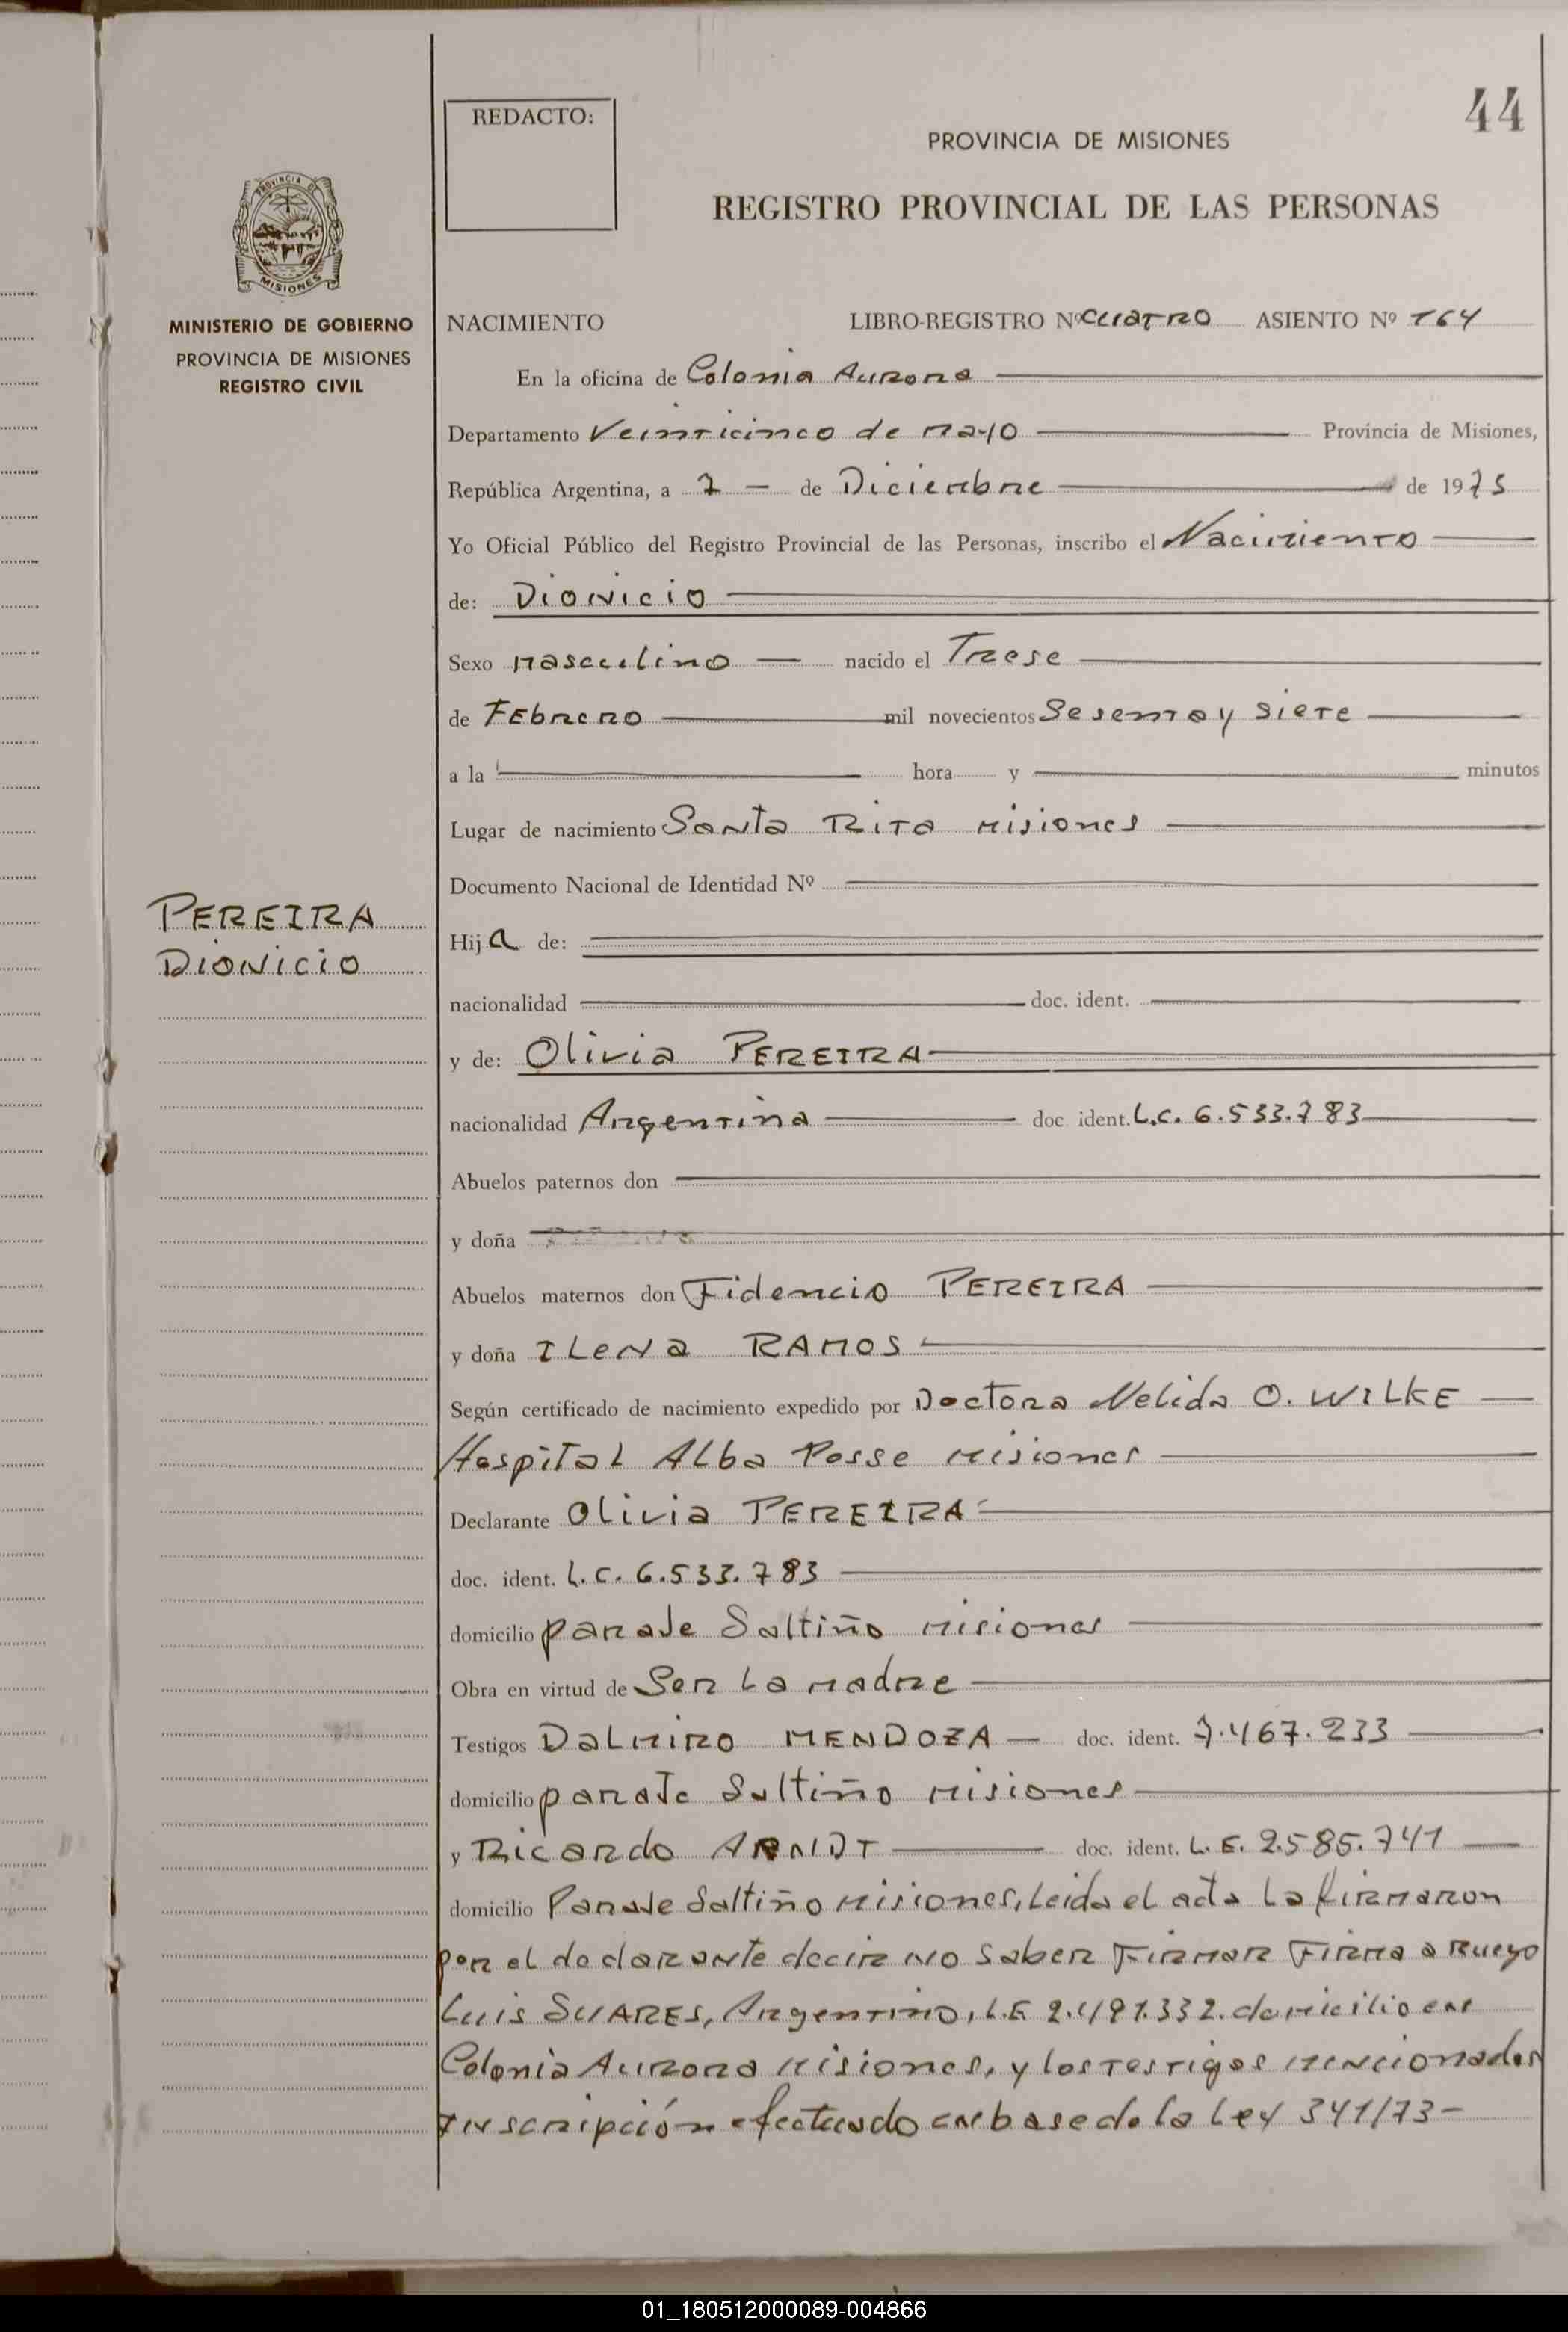 44
REDACTO:
PROVINCIA DE MISIONES
REGISTRO PROVINCIAL DE LAS PERSONAS
PROVINCIA DE
MISIONES
MINISTERIO DE GOBIERNO
PROVINCIA DE MISIONES
REGISTRO CIVIL
NACIMIENTO LIBRO-REGISTRO Nº cuatro ASIENTO Nº 164
En la oficina de Colonia Aurora
Departamento Veinticinco de Mayo Provincia de Misiones,
República Argentina, a 7 — de Diciembre de 1975
Yo Oficial Público del Registro Provincial de las Personas, inscribo el Nacimiento
de: Dionicio
Sexo masculino — nacido el Trese
de Febrero mil novecientos Sesenta y siete
a la hora y minutos
Lugar de nacimiento Santa Rita Misiones
Documento Nacional de Identidad Nº
PEREIRA
Dionicio
Hija de:
nacionalidad doc. ident.
y de: Olivia PEREIRA
nacionalidad Argentina doc ident. L.C. 6.533.783
Abuelos paternos don
y doña
Abuelos maternos don Fidencio PEREIRA
y doña ILena RAMOS
Según certificado de nacimiento expedido por Doctora Nelida O. WILKE
Hospital Alba Posse Misiones
Declarante Olivia PEREIRA
doc. ident. L.C. 6.533.783
domicilio paraje Saltiño Misiones
Obra en virtud de Ser La madre
Testigos Dalmiro MENDOZA — doc. ident. 7.467.233
domicilio paraje Saltiño Misiones
y Ricardo ARNDT doc. ident. L.E. 2.585.741
domicilio Paraje Saltiño Misiones, Leida el acta La firmaron
por el declarante decir no saber Firmar Firma a Ruego
Luis SUARES, Argentino, L.E 2.491.332. domicilio en
Colonia Aurora Misiones, y los testigos mencionados
Inscripción efectuado en base de la Ley 341/73-
01_180512000089-004866